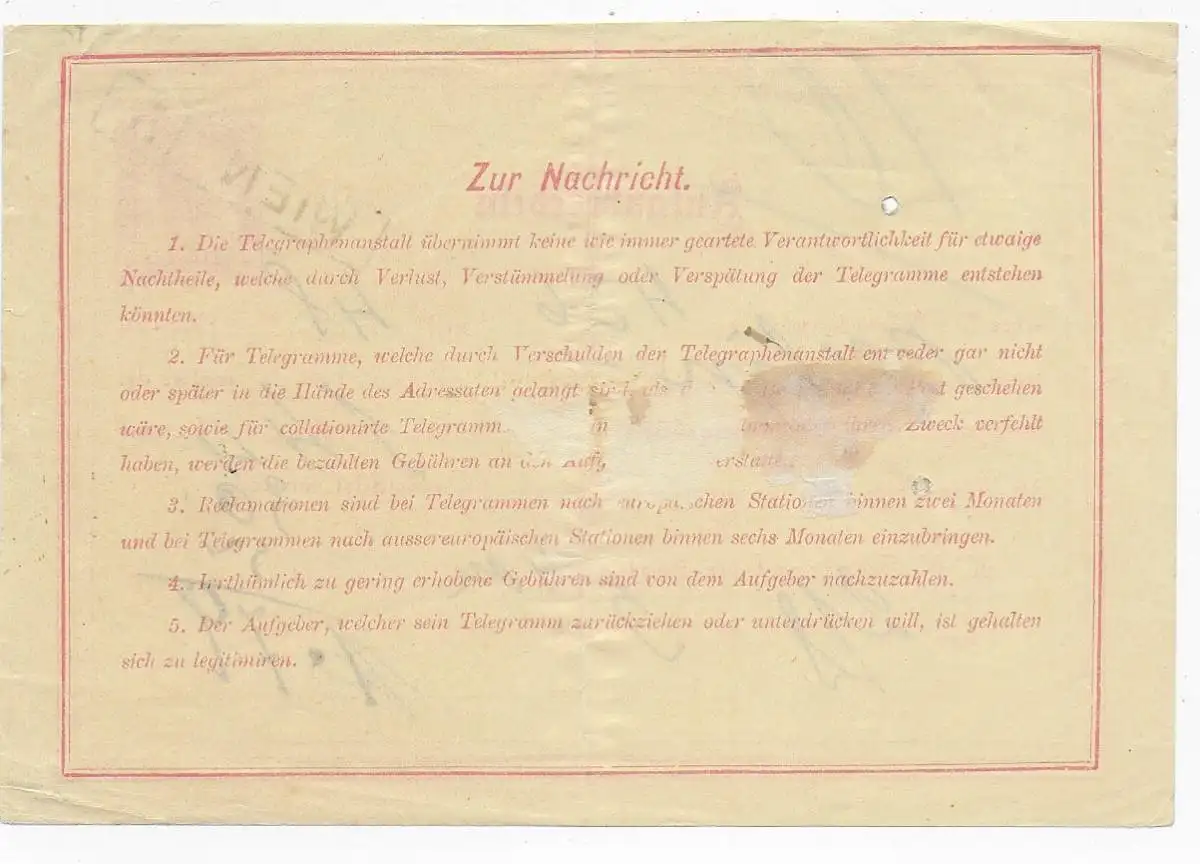 Zur Nachricht.
WIEN
1. Die Telegraphenanstalt übernimmt keine wie immer geartete Verantwortlichkeit für etwaige
Nachtheile, welche durch Verlust, Verstümmelung oder Verspätung der Telegramme entstehen
könnten.
2. Für Telegramme, welche durch Verschulden der Telegraphenanstalt entweder gar nicht
oder später in die Hände des Adressaten gelangt sind, als geschehen
wäre, sowie für collationirte Telegramm Zweck verfehlt
haben, werden die bezahlten Gebühren an den
3. Reclamationen sind bei Telegrammen nach europäischen Stationen binnen zwei Monaten
und bei Telegrammen nach aussereuropäischen Stationen binnen sechs Monaten einzubringen.
4. Irrthümlich zu gering erhobene Gebühren sind von dem Aufgeber nachzuzahlen.
5. Der Aufgeber, welcher sein Telegramm zurückziehen oder unterdrücken will, ist gehalten
sich zu legitimiren.